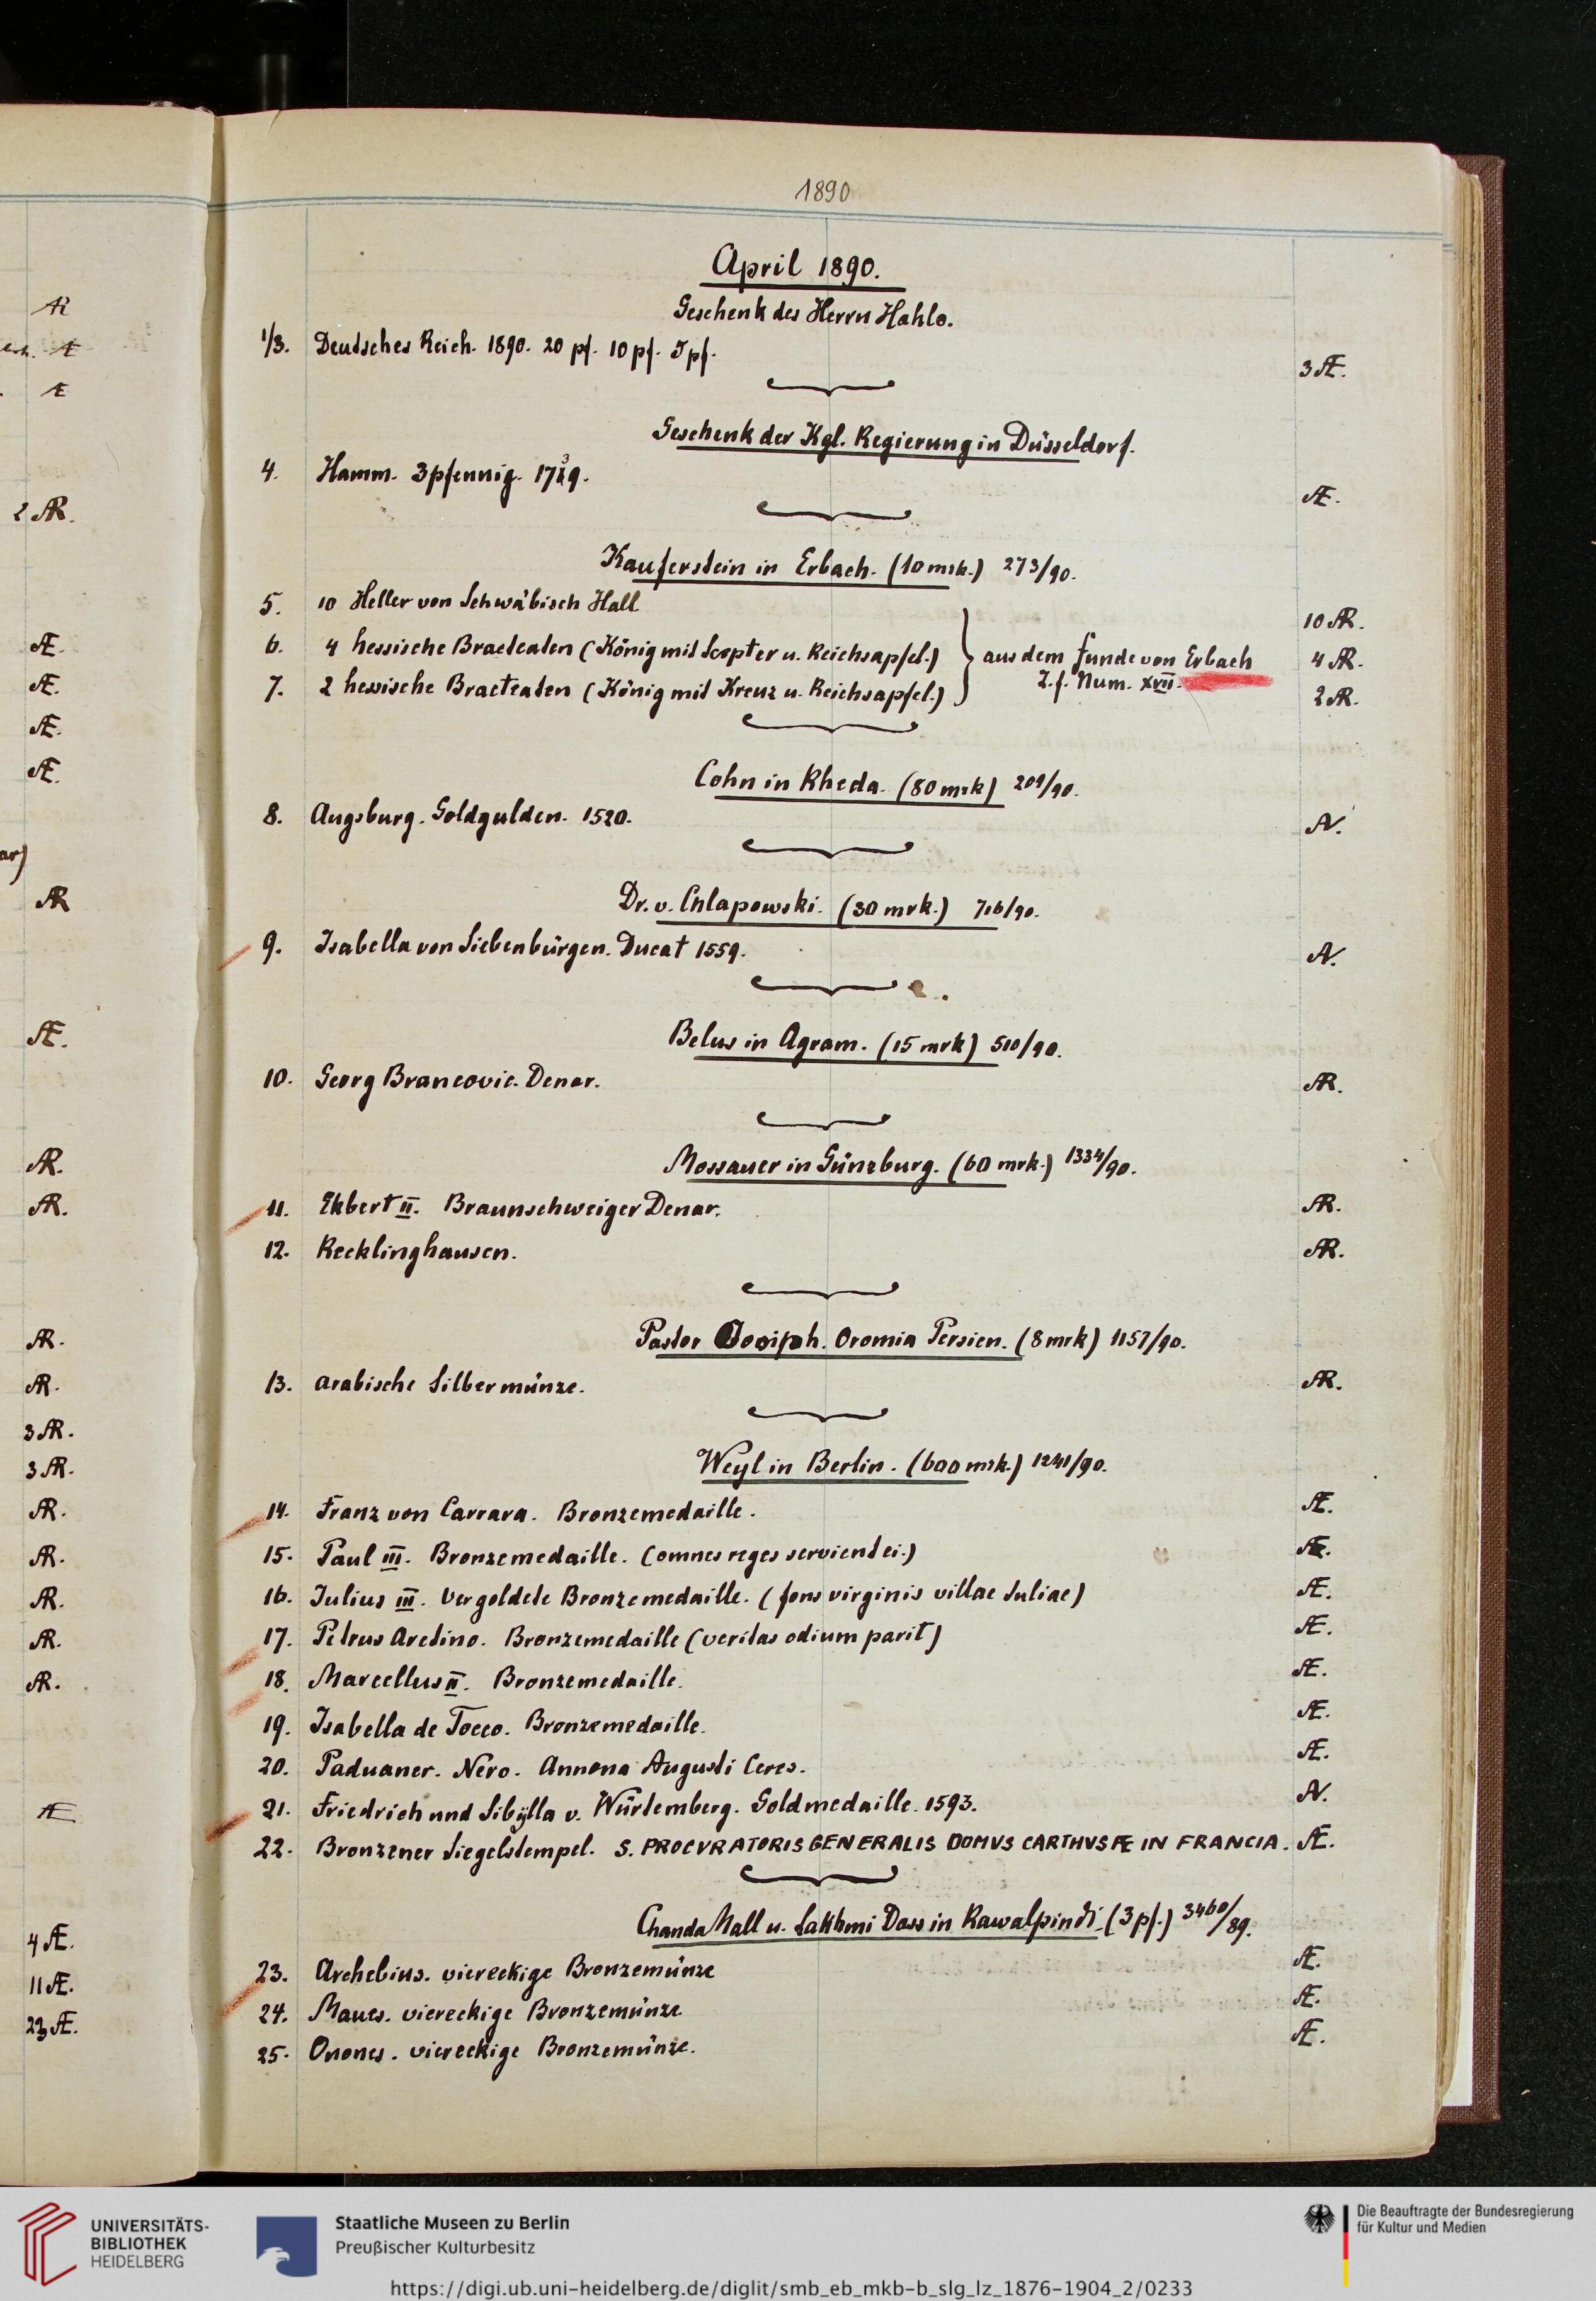 1890
April 1890.
Geschenk des Herrn Hahlo.
1/3. Deutsches Reich. 1890. 20 pf. 10 pf. 5 pf. 3 Æ.
Geschenk der Kgl. Regierung in Düsseldorf.
4. Hamm. 3 pfennig. 1739. Æ.
Kauferstein in Erbach. (10 mrk.) 273/90.
5. 10 Heller von Schwäbisch Hall 10 AR.
6. 4 hessische Bracteaten (König mit Scepter u. Reichsapfel.) aus dem Funde von Erbach 4 AR.
7. 2 hessische Bracteaten (König mit Kreuz u. Reichsapfel.) Z. f. Num. XVII. 2 AR.
Cohn in Rheda. (80 mrk) 209/90.
8. Augsburg. Goldgulden. 1520. AV.
Dr. v. Chlapowski. (30 mrk.) 716/90.
9. Isabella von Siebenbürgen. Ducat 1559. AV.
Belus in Agram. (15 mrk) 510/90.
10. Georg Brancovic. Denar. AR.
Mossauer in Günzburg. (60 mrk.) 1334/90.
11. Ekbert II. Braunschweiger Denar. AR.
12. Recklinghausen. AR.
Pastor Oromia Persien. (8 mrk) 1157/90.
13. arabische Silbermünze. AR.
Weyl in Berlin. (600 mrk.) 1241/90.
14. Franz von Carrara. Bronzemedaille. Æ.
15. Paul III. Bronzemedaille. (omnes reges servient ei.) Æ.
16. Julius III. Vergoldete Bronzemedaille. (fons virginis villae Juliae) Æ.
17. Petrus Aretino. Bronzemedaille (veritas odium parit) Æ.
18. Marcellus II. Bronzemedaille. Æ.
19. Isabella de Tocco. Bronzemedaille. Æ.
20. Paduaner. Nero. Annona Augusti Ceres. Æ.
21. Friedrich und Sibÿlla v. Würtemberg. Goldmedaille. 1593. AV.
22. Bronzener Siegelstempel. S. PROCVRATORIS GENERALIS DOMVS CARTHVSÆ IN FRANCIA. Æ.
Chanda Mall u. Lakhmi Dass in Rawalpindi. (3 pf.) 3460/89.
23. Archebius. viereckige Bronzemünze Æ.
24. Maues. viereckige Bronzemünze. Æ.
25. Onones. viereckige Bronzemünze. Æ.
AR
Æ
Æ
2 AR.
Æ.
Æ.
Æ.
Æ.
ar)
AR
Æ.
AR.
AR.
AR.
AR.
3 AR.
3 AR.
AR.
AR.
AR.
AR.
AR.
Æ
4 Æ.
11 Æ.
Æ.
UNIVERSITÄTS-
BIBLIOTHEK
HEIDELBERG
Staatliche Museen zu Berlin
Preußischer Kulturbesitz
Die Beauftragte der Bundesregierung
für Kultur und Medien
https://digi.ub.uni-heidelberg.de/diglit/smb_eb_mkb-b_slg_lz_1876-1904_2/0233